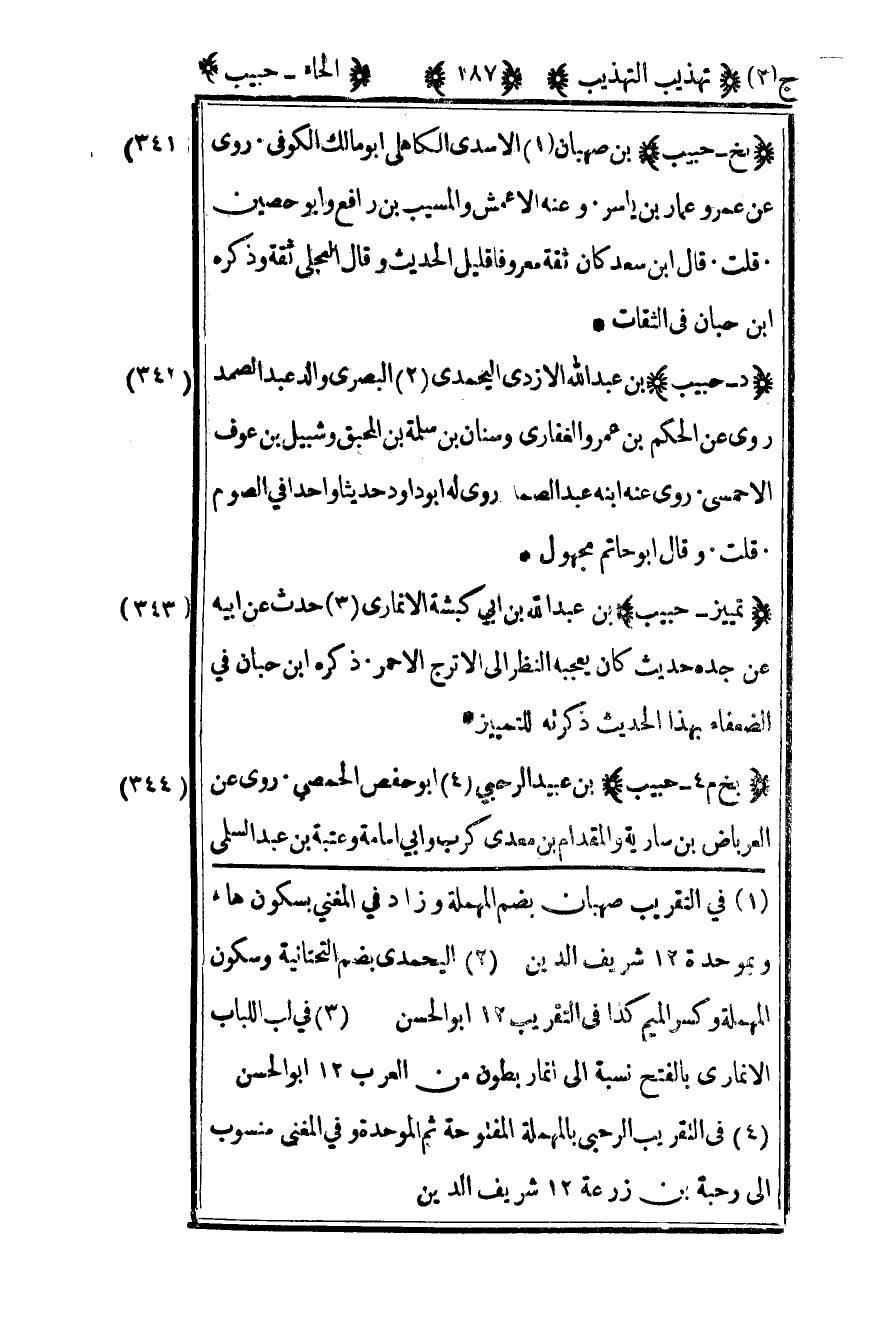 ج(٢) ﴿ تهذيب التهذيب ﴾ ﴿ ١٨٧ ﴾ ﴿ الحاء ـ حبيب ﴾
﴿ بخ ـ حبيب ﴾ بن صهبان (١) الاسدى الكاهلى ابو مالك الكوفى · روى (٣٤١
عن عمر و عمار بن ياسر · و عنه الاعمش والمسيب بن رافع وابو حصين
· قلت · قال ابن سعد كان ثقة معروفا قليل الحديث و قال العجلى ثقة وذكره
ابن حبان فى الثقات •
﴿ د ـ حبيب ﴾ بن عبد الله الازدى اليحمدى (٢) البصرى والد عبد الصمد (٣٤٢)
روى عن الحكم بن عمرو الغفارى وسنان بن سلمة بن المحبق وشبيل بن عوف
الاحمسى · روى عنه ابنه عبد الصمد روى له ابو داود حديثا واحدا في الصوم
· قلت · و قال ابو حاتم مجهول •
﴿ تمييز ـ حبيب ﴾ بن عبد الله بن ابي كبشة الانمارى (٣) حدث عن ابيه (٣٤٣)
عن جده حديث كان يعجبه النظر الى الاترج الاحمر · ذكره ابن حبان في
الضعفاء بهذا الحديث ذكرته للتمييز •
﴿ بخ م ٤ ـ حبيب ﴾ بن عبيد الرحبي (٤) ابو حفص الحمصي · روى عن (٣٤٤)
العرباض بن سارية والمقدام بن معدى كرب وابي امامة وعتبة بن عبد السلمى
(١) في التقريب صهبان بضم المهملة و زاد في المغني بسكون هاء
و بموحدة ١٢ شريف الدين (٢) اليحمدى بضم التحتانية وسكون
المهملة وكسر الميم كذا فى التقريب ١٢ ابو الحسن (٣) في لب اللباب
الانمارى بالفتح نسبة الى انمار بطون من العرب ١٢ ابو الحسن
(٤) فى التقريب الرحبى بالمهملة المفتوحة ثم الموحدة و في المغنى منسوب
الى رحبة بن زرعة ١٢ شريف الدين